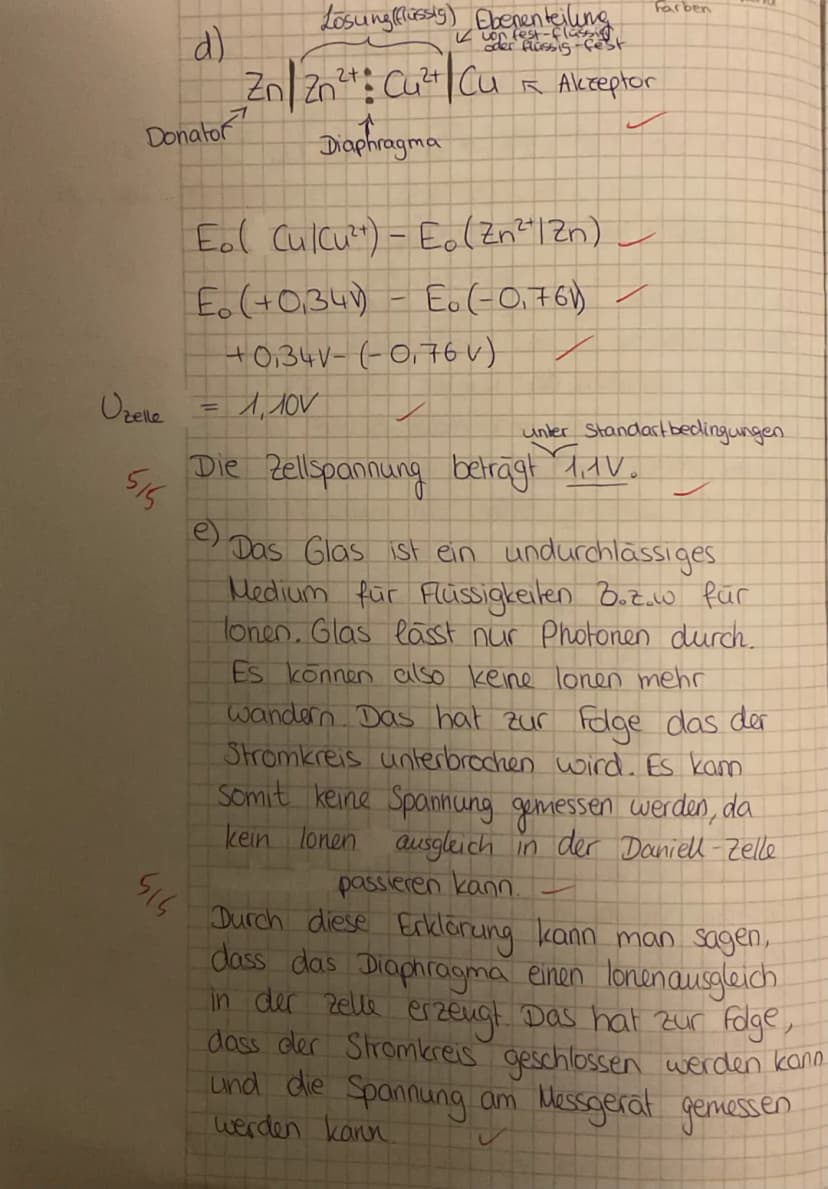 Farben
Lösung(flüssig) Ebenenteilung
d) ↙ von fest-flüssig
oder flüssig-fest
Zn|Zn²⁺⋮Cu²⁺|Cu ↖ Akzeptor
Donator
Diaphragma
E₀( Cu|Cu²⁺) - E₀(Zn²⁺|Zn)
E₀(+0,34V) - E₀(-0,76V)
+0,34V-(-0,76V)
Uzelle = 1,10V
unter Standartbedingungen
5/5 Die Zellspannung beträgt 1,1V.
e) Das Glas ist ein undurchlässiges
Medium für Flüssigkeiten B.z.w für
Ionen. Glas lässt nur Photonen durch.
Es können also keine Ionen mehr
wandern. Das hat zur Folge das der
Stromkreis unterbrochen wird. Es kann
somit keine Spannung gemessen werden, da
kein Ionen ausgleich in der Daniell-Zelle
5/5 passieren kann.
Durch diese Erklärung kann man sagen,
dass das Diaphragma einen Ionenausgleich
in der Zelle erzeugt. Das hat zur Folge,
dass der Stromkreis geschlossen werden kann
und die Spannung am Messgerät gemessen
werden kann.